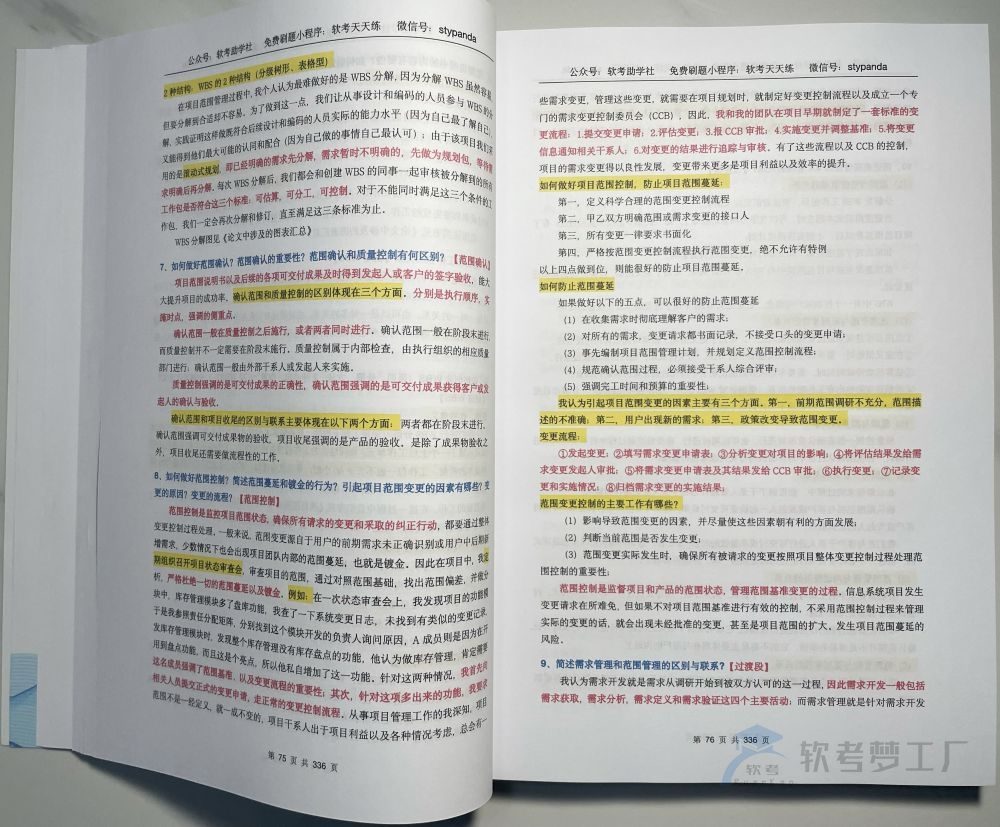 公众号：软考助学社 免费刷题小程序：软考天天练 微信号：stypanda
2种结构：WBS的2种结构（分级树形、表格型）
在项目范围管理过程中，我个人认为最难做好的是WBS分解，因为分解WBS虽然容易，
但要分解到合适却不容易。为了做到这一点，我们让从事设计和编码的人员参与WBS的分
解，实践证明这样做既符合后续设计和编码的人员实际的能力水平（因为自己最了解自己），
又能得到他们最大可能的认同和配合（因为自己做的事情自己最认可）；由于该项目我们采
用的是滚动式规划，即已经明确的需求先分解，需求暂时不明确的，先做为规划包，等待需
求明确后再分解。每次WBS分解后，我们都会和创建WBS的同事一起审核被分解到的所有
工作包是否符合这三个标准：可估算，可分工，可控制。对于不能同时满足这三个条件的工
作包，我们一定会再次分解和修订，直至满足这三条标准为止。
WBS分解图见《论文中涉及的图表汇总》
7、如何做好范围确认？范围确认的重要性？范围确认和质量控制有何区别？【范围确认】
项目范围说明书以及后续的各项可交付成果及时得到发起人或客户的签字验收，能大
大提升项目的成功率。确认范围和质量控制的区别体现在三个方面，分别是执行顺序，实
施时点，强调的侧重点。
确认范围一般在质量控制之后施行，或者两者同时进行。确认范围一般在阶段末进行，
而质量控制并不一定需要在阶段末施行。质量控制属于内部检查，由执行组织的相应质量
部门进行；确认范围一般由外部干系人或发起人来实施。
质量控制强调的是可交付成果的正确性，确认范围强调的是可交付成果获得客户或发
起人的确认与验收。
确认范围和项目收尾的区别与联系主要体现在以下两个方面：两者都在阶段末进行，
确认范围强调可交付成果物的验收，项目收尾强调的是产品的验收。是除了成果物验收之
外，项目收尾还需要做流程性的工作。
8、如何做好范围控制？简述范围蔓延和镀金的行为？引起项目范围变更的因素有哪些？变
更的原因？变更的流程？【范围控制】
范围控制是监控项目范围状态，确保所有请求的变更和采取的纠正行动，都要通过整体
变更控制过程处理，一般来说，范围变更源自于用户的前期需求未正确识别或用户中后期新
增需求，少数情况下也会出现项目团队内部的范围蔓延，也就是镀金。因此在项目中，我定
期组织召开项目状态审查会，审查项目的范围，通过对照范围基础，找出范围偏差，并做分
析，严格杜绝一切的范围蔓延以及镀金。例如：在一次状态审查会上，我发现项目的功能模
块中，库存管理模块多了盘库功能，我查了一下系统变更日志，未找到有类似的变更记录，
于是我参照责任分配矩阵，分别找到这个模块开发的负责人询问原因，A成员则是因为在开
发库存管理模块时，发现整个库存管理没有库存盘点的功能，他认为做库存管理，肯定需要
用到盘点功能，而且这是个亮点，所以他私自增加了这一功能。针对这两种情况，我首先向
这名成员强调了范围基准，以及变更流程的重要性；其次，针对这项多出来的功能，我要求
相关人员提交正式的变更申请，走正常的变更控制流程。从事项目管理工作的我深知，项目
范围不是一经定义，就一成不变的，项目干系人出于项目利益以及各种情况考虑，总会有一
第 75 页 共 336 页
公众号：软考助学社 免费刷题小程序：软考天天练 微信号：stypanda
些需求变更，管理这些变更，就需要在项目规划时，就制定好变更控制流程以及成立一个专
门的需求变更控制委员会（CCB），因此，我和我的团队在项目早期就制定了一套标准的变
更流程：1.提交变更申请；2.评估变更；3.报CCB审批；4.实施变更并调整基准；5.将变更
信息通知相关干系人；6.对变更的结果进行追踪与审核。有了这些流程以及CCB的控制，
项目的需求变更得以良性发展，变更带来更多是项目利益以及效率的提升。
如何做好项目范围控制，防止项目范围蔓延：
第一，定义科学合理的范围变更控制流程
第二，甲乙双方明确范围或需求变更的接口人
第三，所有变更一律要求书面化
第四，严格按范围变更控制流程执行范围变更，绝不允许有特例
以上四点做到位，则能很好的防止项目范围蔓延。
如何防止范围蔓延
如果做好以下的五点，可以很好的防止范围蔓延
（1）在收集需求时彻底理解客户的需求；
（2）对所有的需求，变更请求都书面记录，不接受口头的变更申请；
（3）事先编制项目范围管理计划，并规划定义范围控制流程；
（4）规范确认范围过程，必须接受干系人综合评审；
（5）强调完工时间和预算的重要性；
我认为引起项目范围变更的因素主要有三个方面。第一，前期范围调研不充分，范围描
述的不准确；第二，用户出现新的需求；第三，政策改变导致范围变更。
变更流程：
①发起变更；②填写需求变更申请表；③分析变更对项目的影响；④将评估结果发给需
求变更发起人审批；⑤将需求变更申请表及其结果发给CCB审批；⑥执行变更；⑦记录变
更和实施情况；⑧归档需求变更的实施结果；
范围变更控制的主要工作有哪些？
（1）影响导致范围变更的因素，并尽量使这些因素朝有利的方面发展；
（2）判断当前范围是否发生变更；
（3）范围变更实际发生时，确保所有被请求的变更按照项目整体变更控制过程处理范
围控制的重要性；
范围控制是监督项目和产品的范围状态，管理范围基准变更的过程。信息系统项目发生
变更请求在所难免，但如果不对项目范围基准进行有效的控制，不采用范围控制过程来管理
实际的变更的话，就会出现未经批准的变更，甚至是项目范围的扩大。发生项目范围蔓延的
风险。
9、简述需求管理和范围管理的区别与联系？【过渡段】
我认为需求开发就是需求从调研开始到被双方认可的这一过程，因此需求开发一般包括
需求获取，需求分析，需求定义和需求验证这四个主要活动；而需求管理就是针对需求开发
第 76 页 共 336 页
软考
软考梦工厂